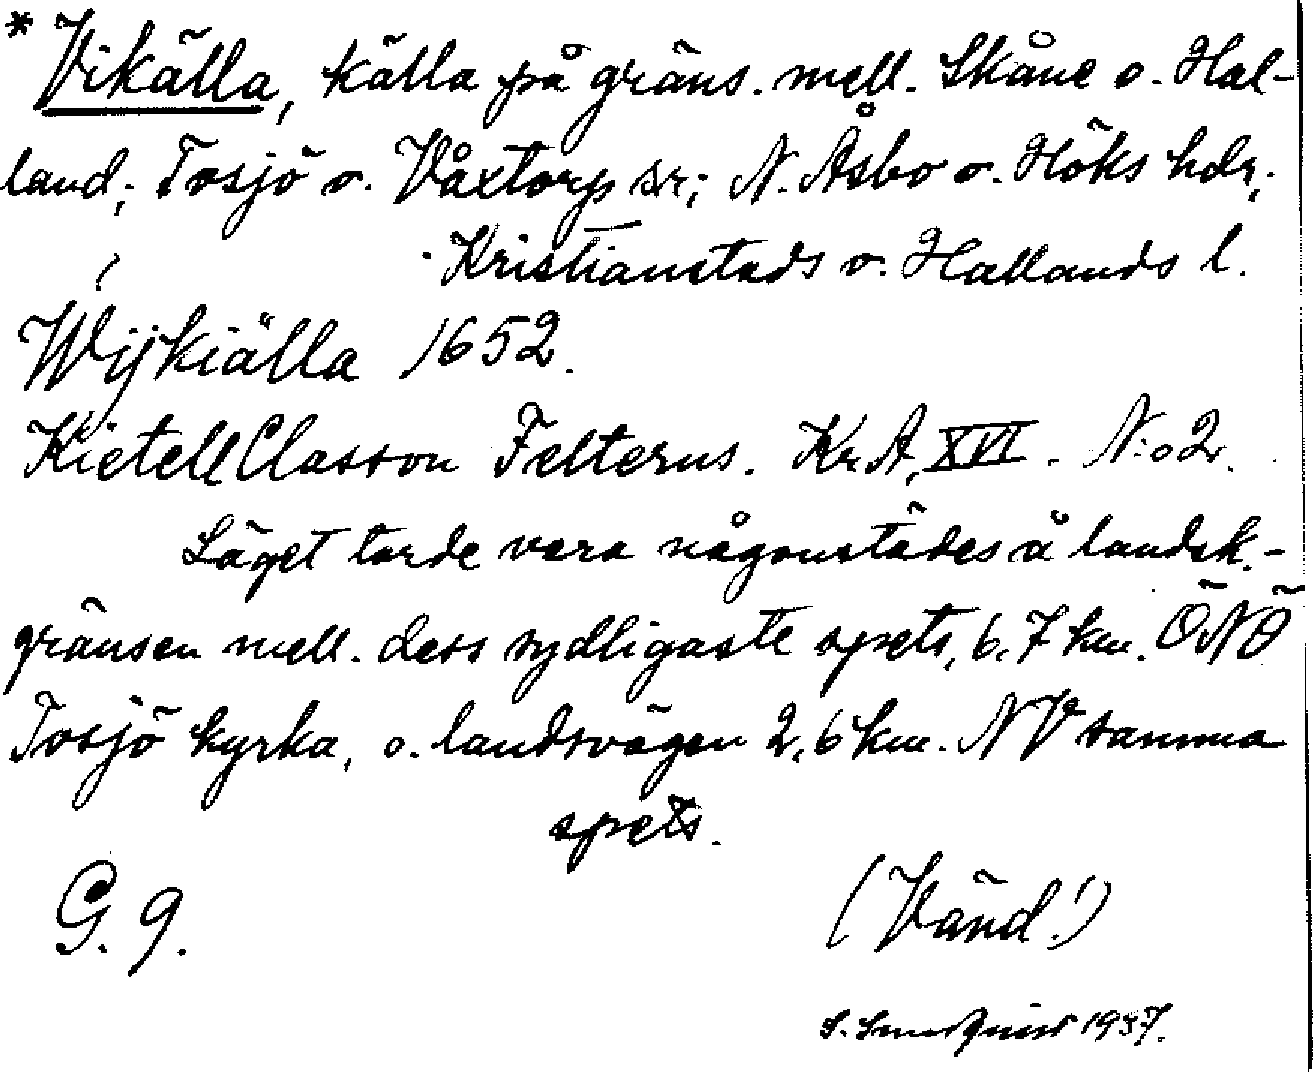 * Vikälla, källa på gräns. mell. Skåne o. Hal-
land; Tosjö o. Våxtorps sr; N. Åsbo o. Höks hdr,
Kristianstads o. Hallands l.
Wijkiälla 1652.
Kietell Classon Felterus. KrA, XVI. N:o 2.
Läget torde vara någonstädes å landsk.-
gränsen mell. dess sydligaste spets, 6,7 km. ÖNÖ
Tosjö kyrka, o. landsvägen 2,6 km. NV samma
spets.
G. 9.
(Vänd!)
S. Sundquist 1937.